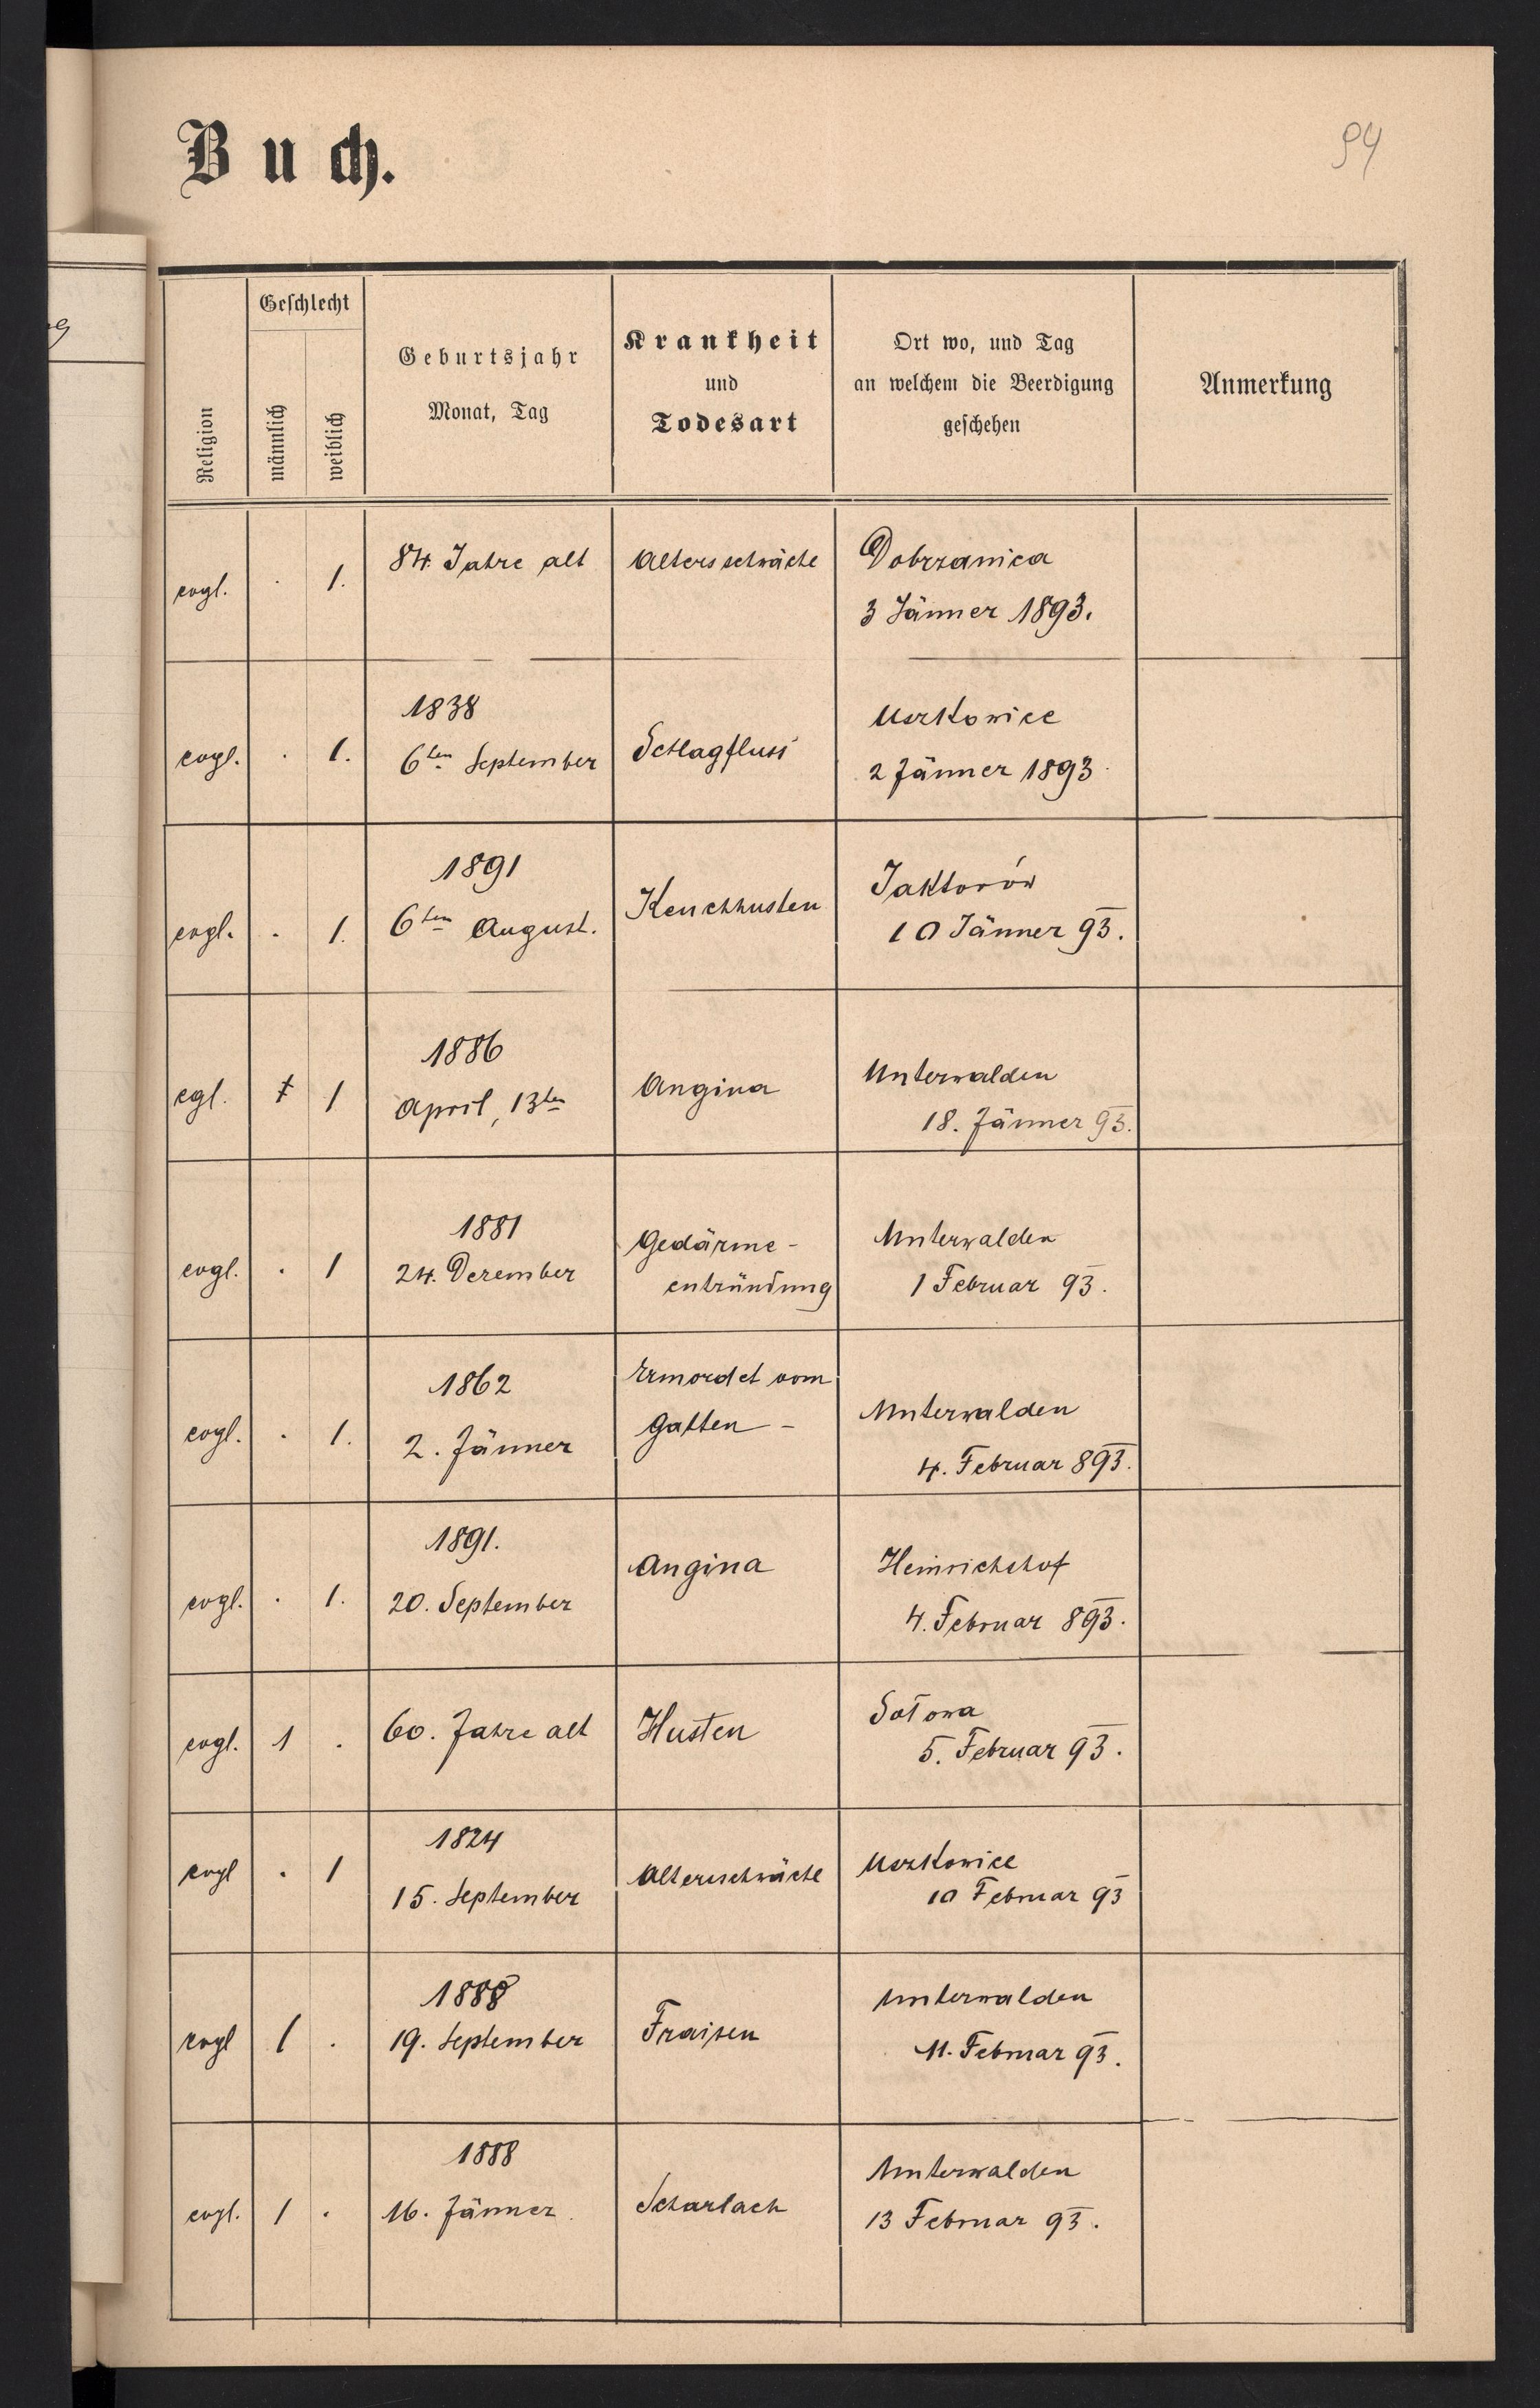 Buch.
94
Religion
Geschlecht
männlich
weiblich
Geburtsjahr
Monat, Tag
Krankheit
und
Todesart
Ort wo, und Tag
an welchem die Beerdigung
geschehen
Anmerkung
evgl. . 1. 84 Jahre alt Altersschwäche Dobrzanica
3 Jänner 1893.
1838 Uszkowice
evgl. . 1. 6ten September Schlagfluss 2 Jänner 1893
1891 Jaktorów
evgl. . 1. 6ten August. Keuchhusten 10 Jänner 93.
1886 Unterwalden
egl. 1 1 April, 13ten Angina 18. Jänner 93.
1881 Gedärme- Unterwalden
evgl. . 1 24. Dezember entzündung 1 Februar 93.
1862 Ermordet vom Unterwalden
evgl. . 1. 2. Jänner Gatten - 4. Februar 893.
1891. Angina Heinrichshof
evgl. . 1. 20. September 4. Februar 893.
evgl. 1 . 60. Jahre alt Husten Sołowa
5. Februar 93.
1824 Uszkowice
evgl . 1 15. September Altersschwäche 10 Februar 93
1888 Unterwalden
evgl 1 . 19. September Fraisen 11. Februar 93.
1888 Unterwalden
evgl. 1 . 16. Jänner Scharlach 13 Februar 93.